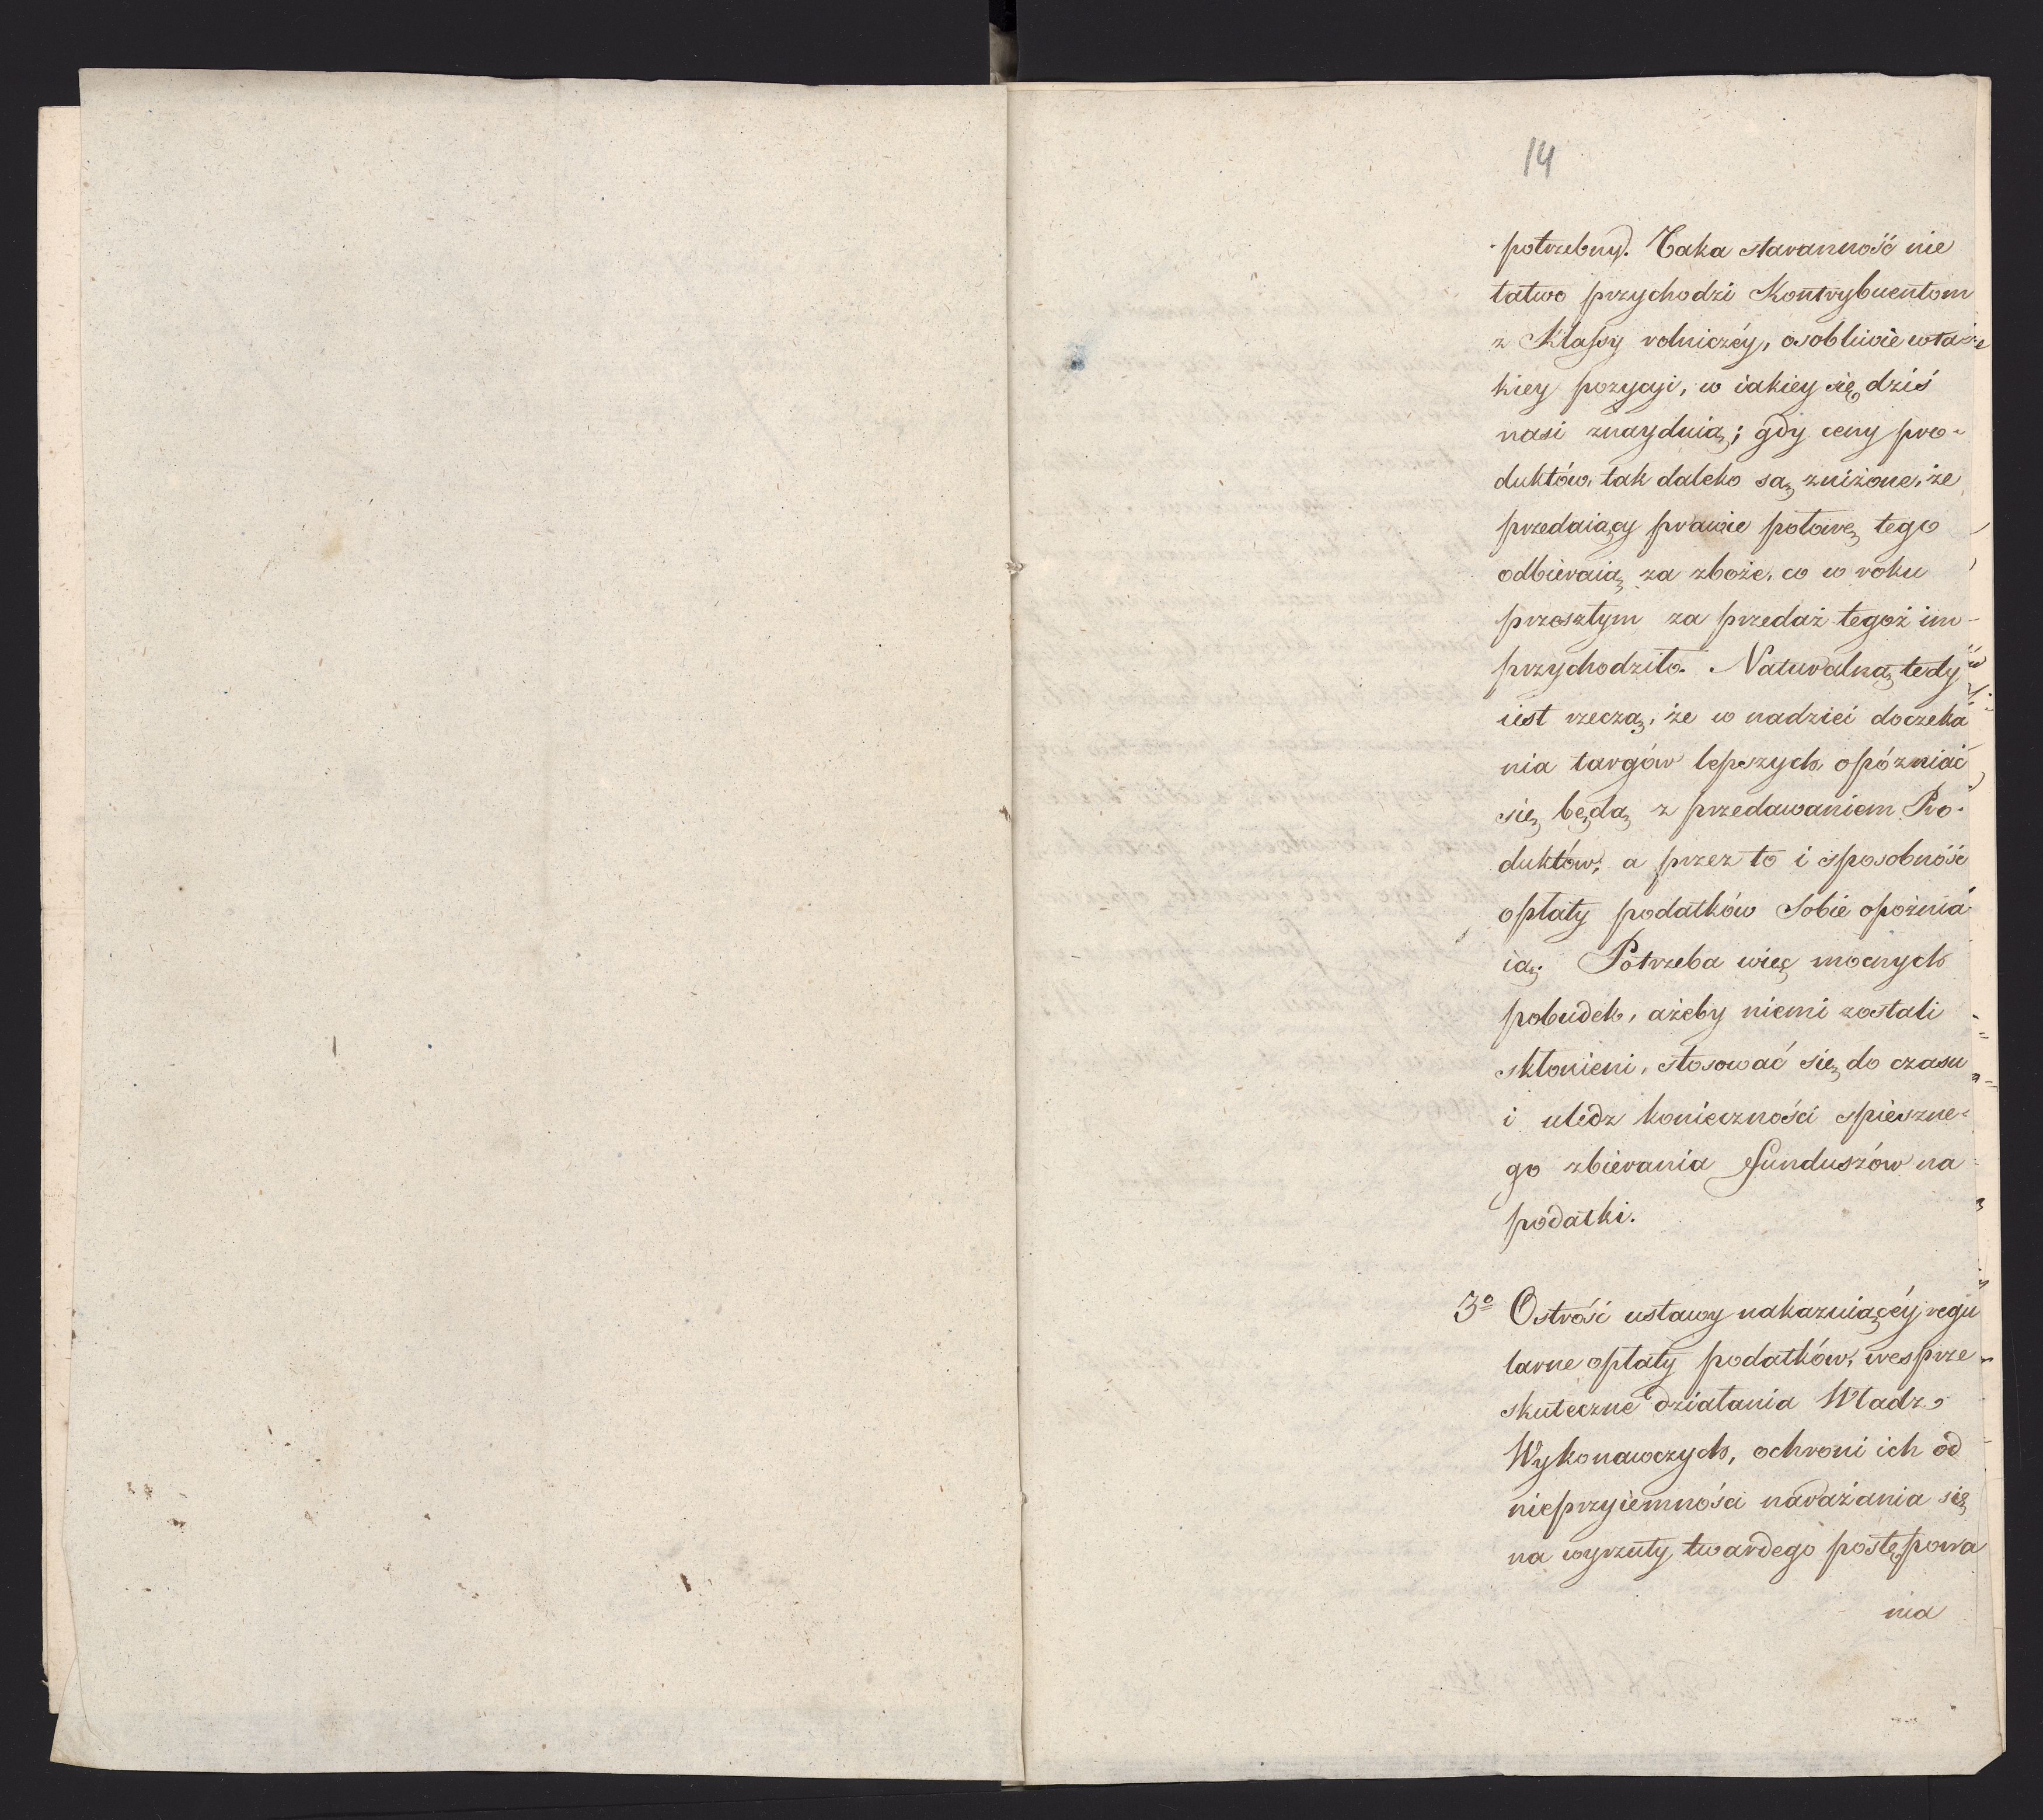 14
potrzebny. Taka staranność nie
łatwo przychodzi Kontrybuentom
z Klassy rolniczéy, osobliwie w ta-
kiey pozycyi, w iakiey się dziś
nasi znayduią; gdy ceny pro-
duktów, tak daleko są zniżone, że
przedaiący prawie połowę tego
odbieraią za zboże, co w roku
przeszłym za przedaż tegoż im
przychodziło. Naturalną tedy
iest rzeczą, że w nadziei doczeka
nia targów lepszych opózniać
się będą z przedawaniem Pro-
duktów, a przez to i sposobność
opłaty podatków Sobie opoźnia
ią. Potrzeba więc mocnych
pobudek, ażeby niemi zostali
skłonieni, stosować się do czasu
i uledz konieczności spieszne-
go zbierania funduszów na
podatki.
3o Ostrość ustawy nakazuiącéy regu
larne opłaty podatków, wesprze
skuteczne działania Władz
Wykonawczych, ochroni ich od
nieprzyiemności narażania się
na wyrzuty twardego postępowa
nia